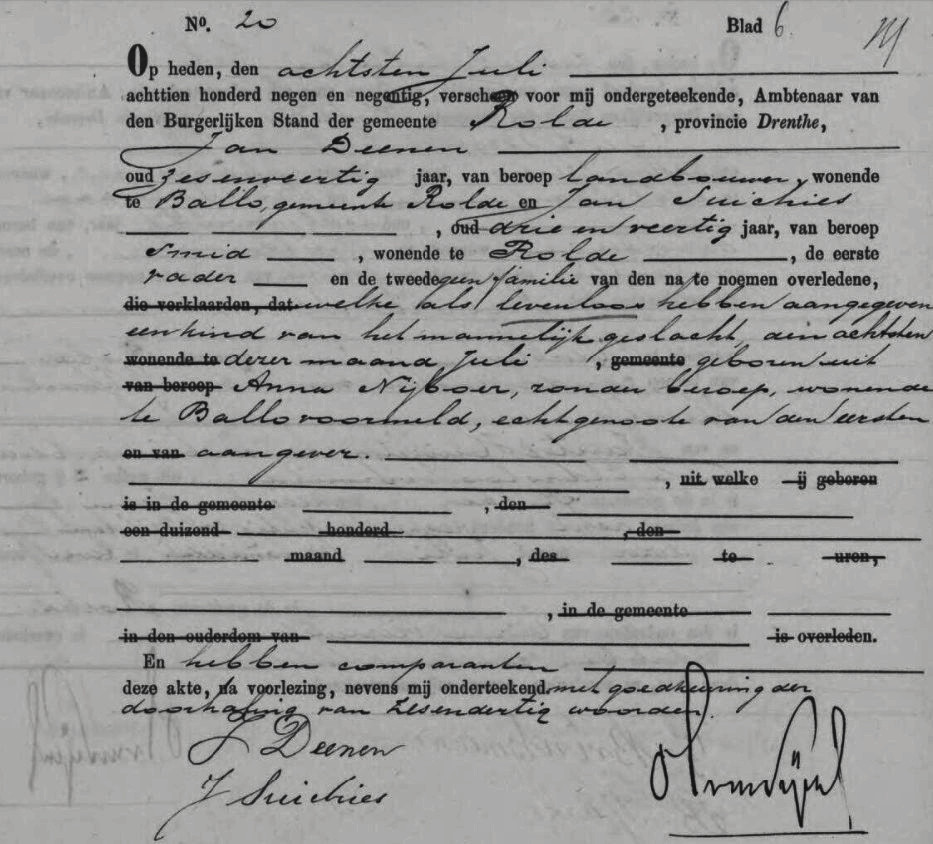 No. 20 Blad 6
Op heden, den achtsten Juli
achttien honderd negen en negentig, verscheen voor mij ondergeteekende, Ambtenaar van
den Burgerlijken Stand der gemeente Rolde, provincie Drenthe,
Jan Deenen
oud zesenveertig jaar, van beroep landbouwer, wonende
te Ballo, gemeente Rolde en Jan Suichies
, oud drie en veertig jaar, van beroep
smid, wonende te Rolde, de eerste
vader en de tweede geen familie van den na te noemen overledene,
die verklaarden, dat welke als levenloos hebben aangegeven
een kind van het mannelijk geslacht, den achtsten
wonende te dezer maand Juli, gemeente geboren uit
van beroep Anna Nijboer, zonder beroep, wonende
te Ballo voormeld, echtgenoote van den eersten
en van aangever.
, uit welke ij geboren
is in de gemeente , den
een duizend honderd , den
maand , des te uren,
, in de gemeente
in den ouderdom van is overleden.
En hebben comparanten
deze akte, na voorlezing, nevens mij onderteekend met goedkeuring der
doorhaling van zesendertig woorden.
J Deenen
J Suichies